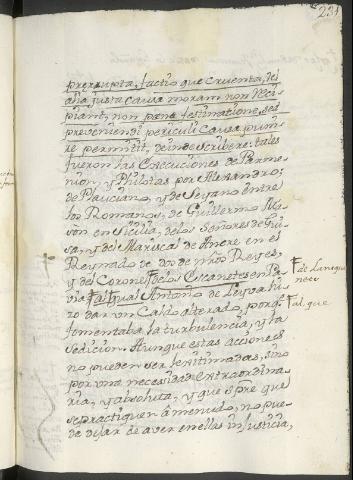 231
prerrupta, factio que cruenta, vel
alia justa causa moram non reci
piant, non pena festinatione, sed
preveniendi periculi causa puni
re permittit, deinde scribere: tales
fueron las execuciones de Parme
nion, y Philotas por Alexandro;
de Plauciano, y de Seyano entre
los Romanos, de Guillermo Ma
son en Sicilia, de los Señores de Gui
sa, y del Mariscal de Ancre en el
Reynado de dos de nr̃os Reyes,
y del Coronel de los Escanetes en Pa
via al qual Antonio de Leyva hi
zo dar un Caldo alterado, porq̃.
fomentaba la turbulencia, y la
sedicion. Aunque estas acciones
no pueden ser lexitimadas, sino
por una necesidad extraordina
ria, y absoluta, y que siẽpre que
se practiquen à menudo, no pue
de dejar de aver en ellas injusticia,
de Lansque
netes
al, que